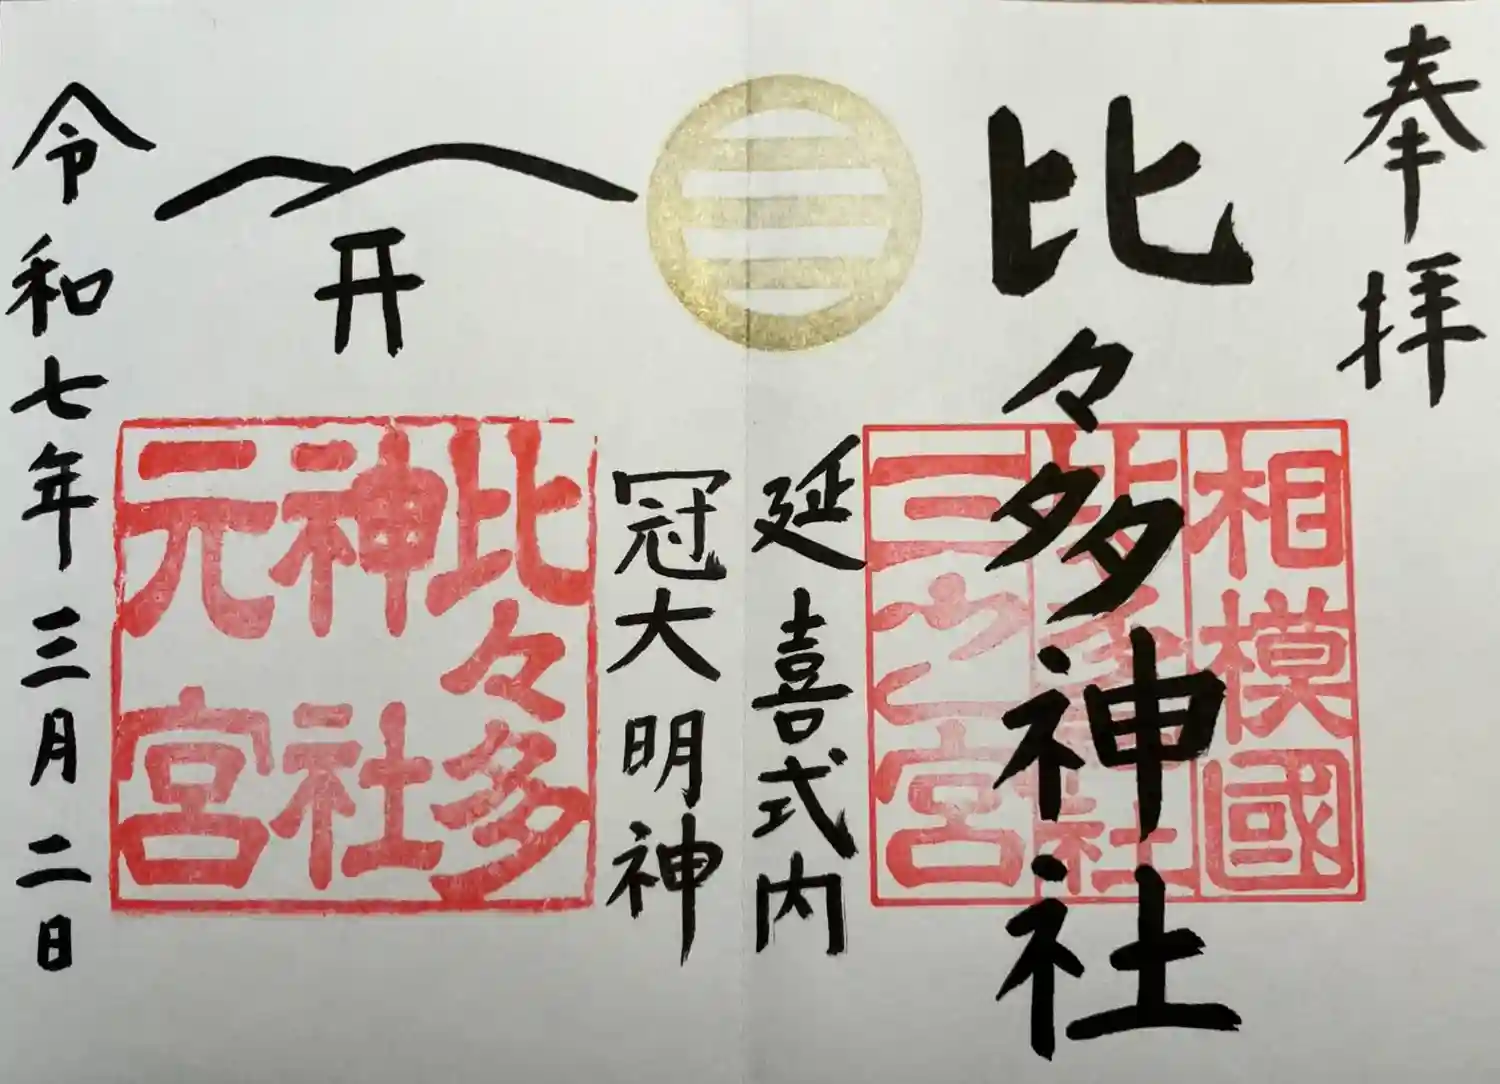 奉拝
比々多神社
相模國
比々多神社
三之宮
延喜式内
冠大明神
比々多
神社
元宮
令和七年三月二日